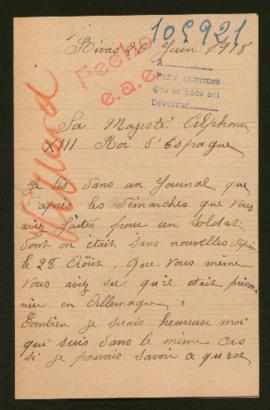 105921
Rivas 26 Juin 1918
Fecho
e.a.e.
A
Pedir informes
Que se hace así
Devolver
Villard
Sa Majesté Alphonse
XIII Roi d'Espagne
Je lis dans un Journal que
d'après les Démarches que Vous
avez faites pour un Soldat
dont on était sans nouvelles depuis
le 28 Août, que Vous même
Vous avez su qu'il était prison
nier en Allemagne !
Combien je serais heureuse moi
qui suis dans le même cas
si je pouvais savoir a qu'en